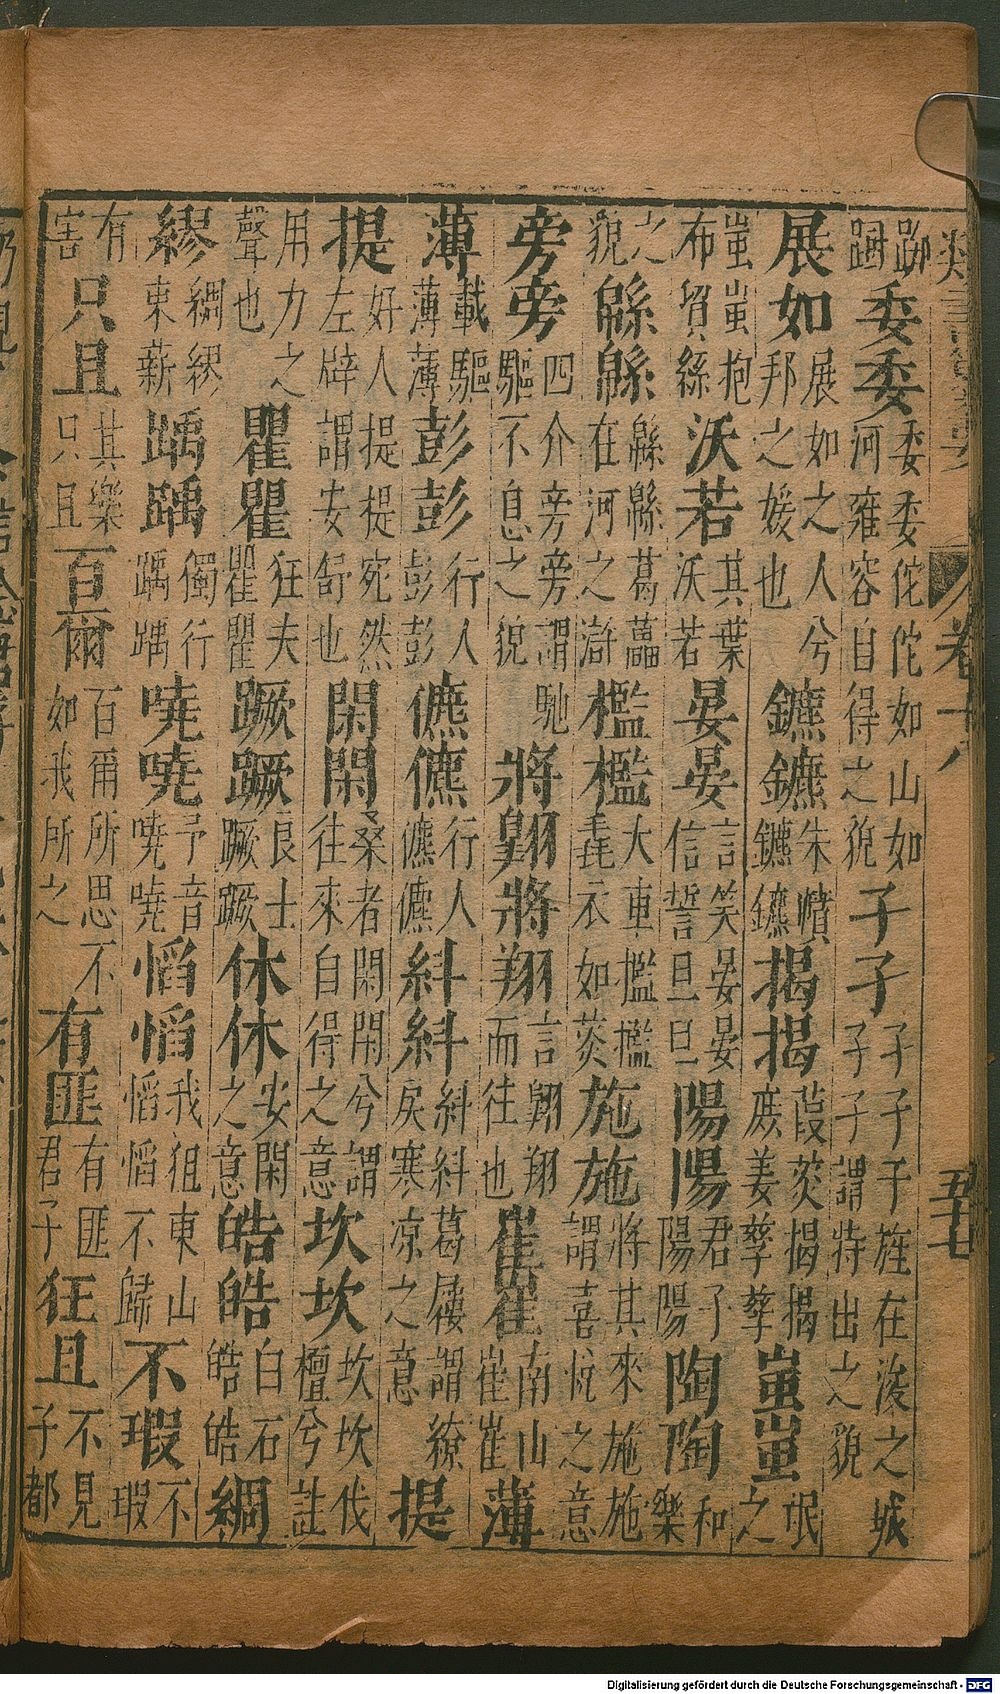 類書纂要 卷十八 五十七
委委委委佗佗如山如河雍容自得之貌孑孑孑孑干旌在浚之城孑孑謂特出之貌
展如展如之人兮邦之媛也鑣鑣朱幩鑣鑣揭揭葭菼揭揭庶姜孽孽蚩蚩氓之
蚩蚩抱布貿絲沃若其葉沃若晏晏言笑晏晏信誓旦旦陽陽君子陽陽陶陶和樂
之貌緜緜緜緜葛藟在河之滸檻檻大車檻檻毳衣如菼施施將其來施施謂喜悅之意
旁旁四介旁旁謂馳驅不息之貌將翱將翔言翱翔而往也崔崔南山崔崔薄
薄載驅薄薄彭彭行人彭彭儦儦行人儦儦糾糾糾糾葛屨謂繚戾寒凉之意提
提好人提提宛然左辟謂安舒也閑閑桑者閑閑兮謂往來自得之意坎坎坎坎伐檀兮註
用力之聲也瞿瞿狂夫瞿瞿蹶蹶良士蹶蹶休休安閑之意皓皓白石皓皓綢
繆綢繆束薪踽踽獨行踽踽嘵嘵予音嘵嘵慆慆我徂東山慆慆不歸不瑕不瑕
有害只且其樂只且百爾百爾所思不如我所之有匪有匪君子狂且不見子都
Digitalisierung gefördert durch die Deutsche Forschungsgemeinschaft - DFG